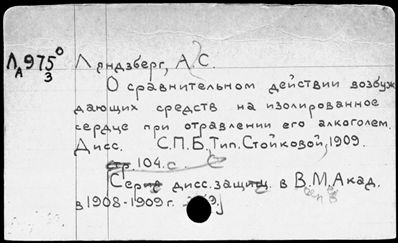 Л А 975⁰ 3
Ляндзберг, А.С.
О сравнительном действии возбуж
дающих средств на изолированное
сердце при отравлении его алкоголем.
Дисс. С.П.Б. Тип. Стойковой, 1909.
104. с.
Серия дисс. защищ. в В. М. Акад.
в 1908-1909 г.